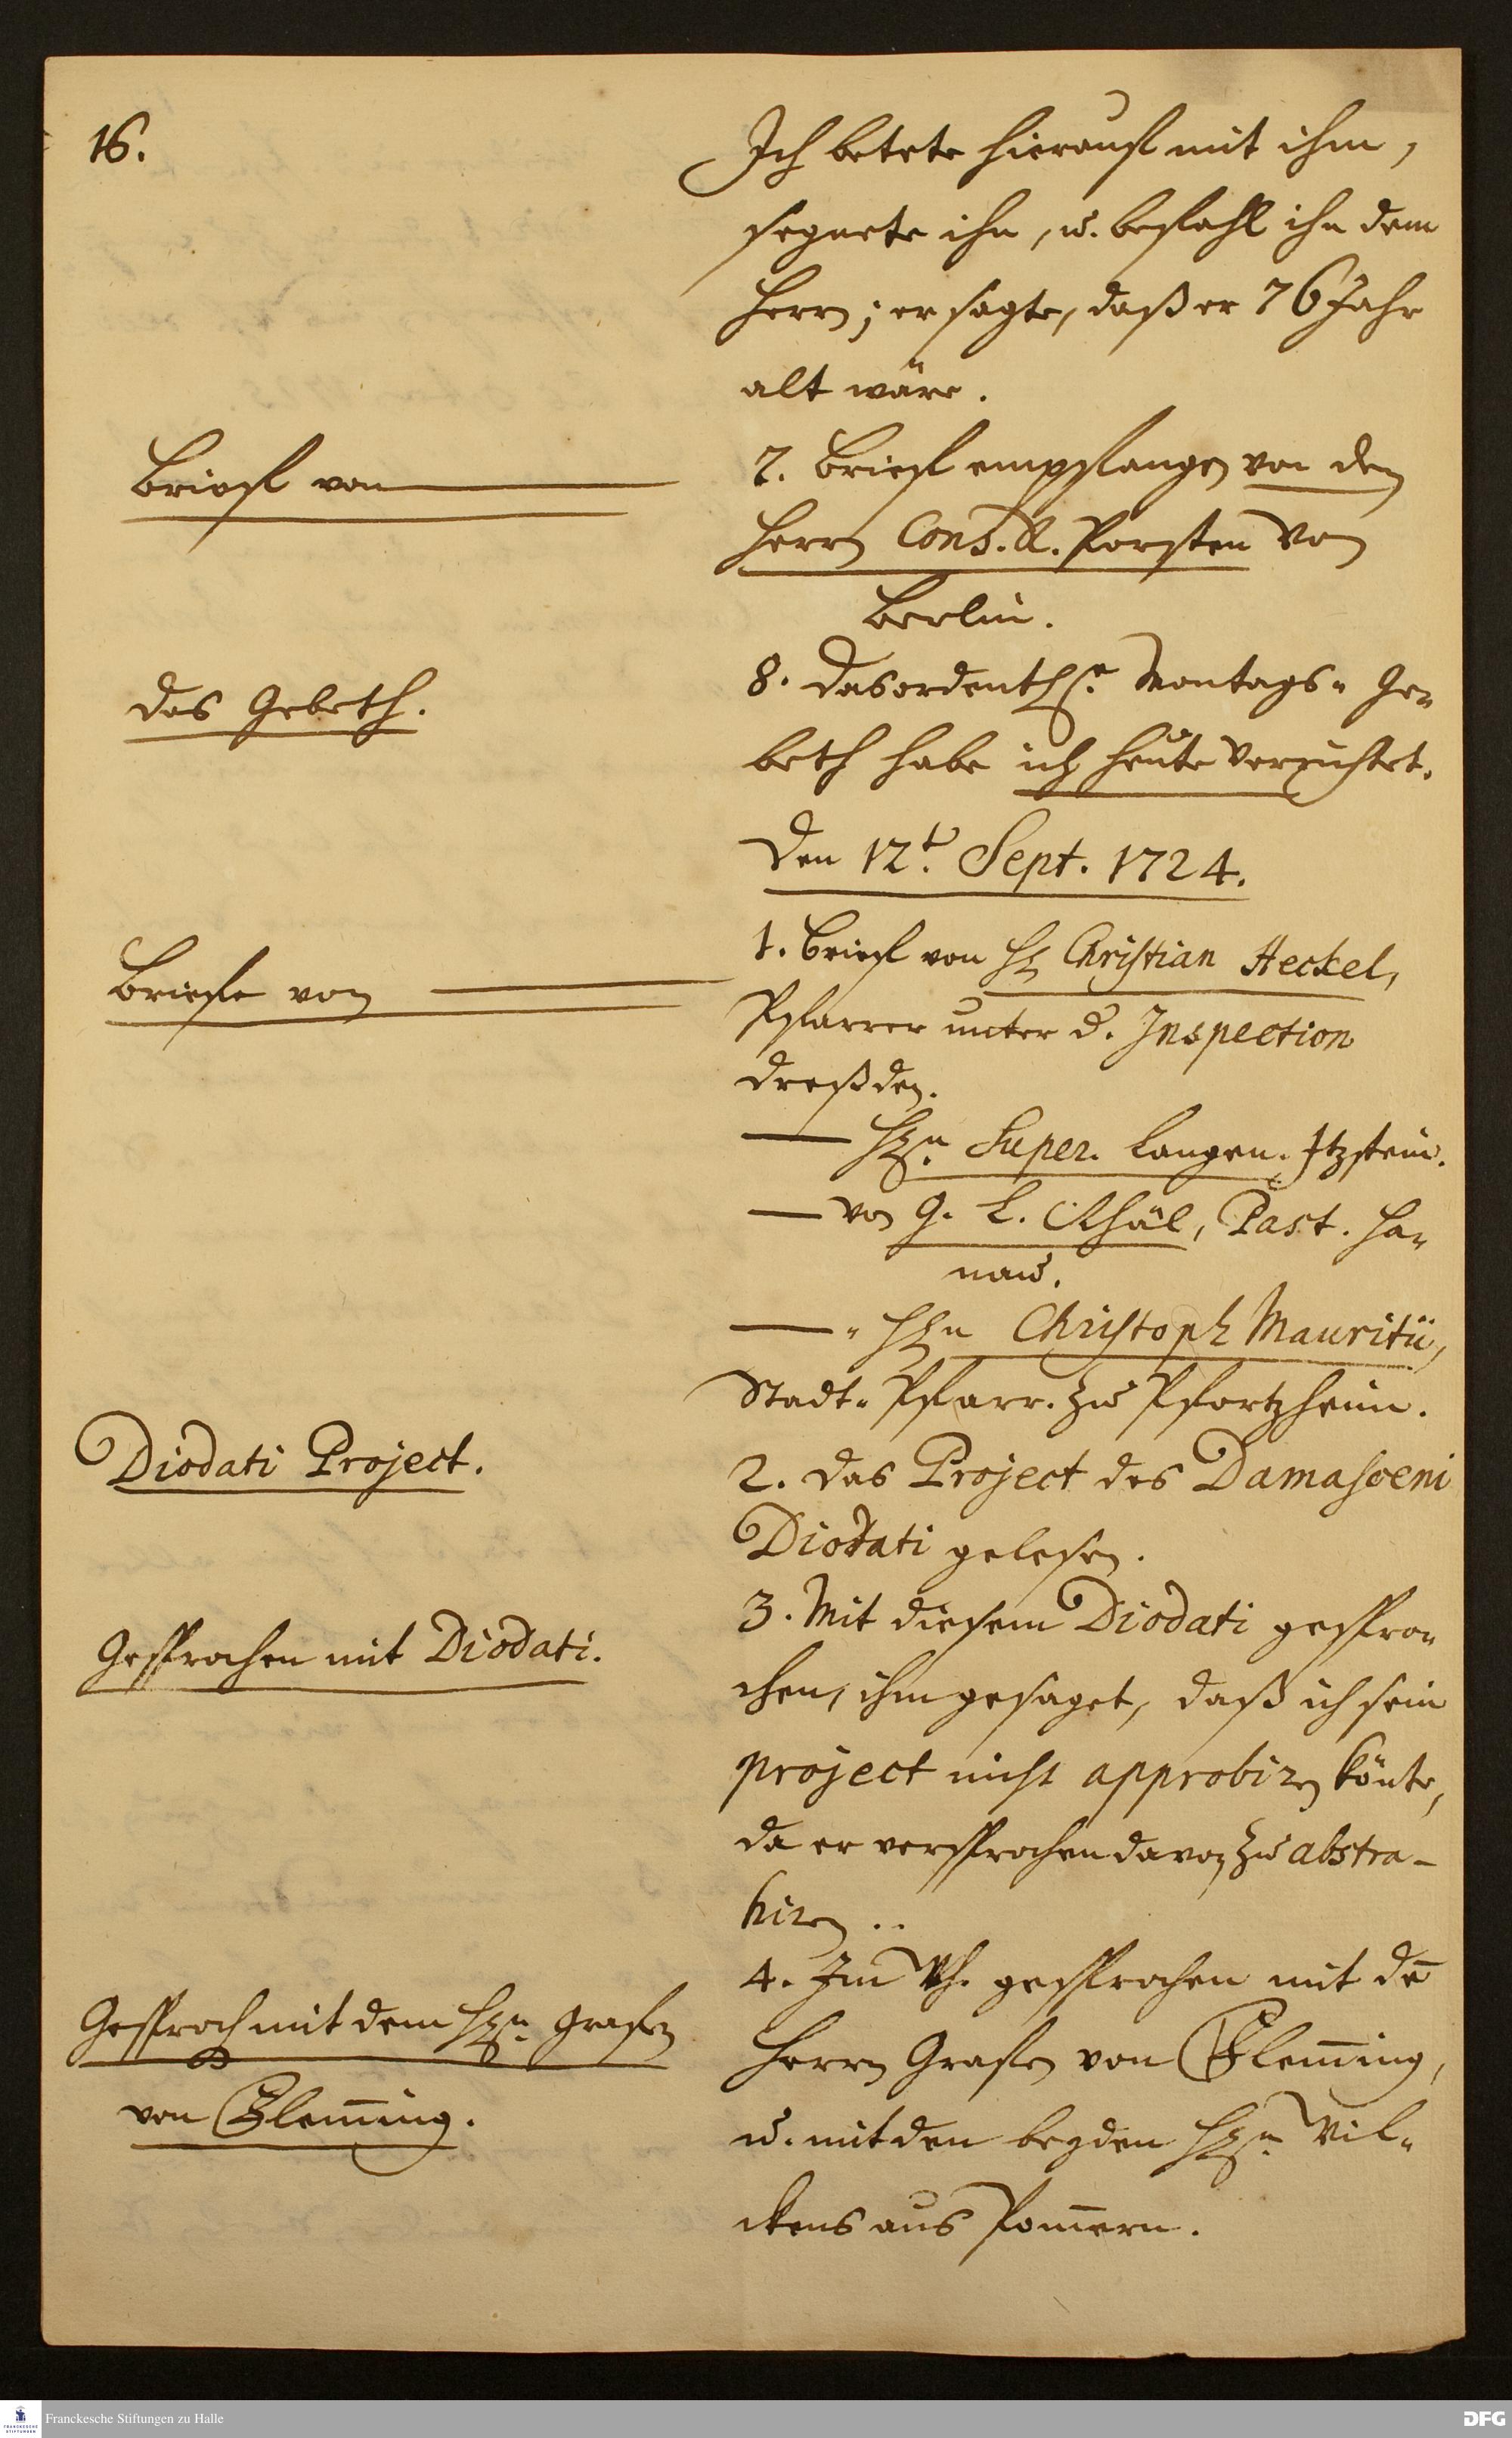 16.
Ich betete hierauf mit ihm,
segnete ihn, u. befahl ihn dem
Herrn; er sagte, daß er 76 Jahr
alt wäre.
Brief von
7. Brief empfangen von dem
Herrn Cons. R. Porsten von
Berlin.
das Gebeth.
8. Das ordentl. Montags-Ge-
beth habe ich heute verrichtet.
Den 12t. Sept. 1724.
Briefe von
1. Brief von H. Christian Heckel,
Pfarrer unter d. Inspection
Dreßden.
— Hn. Super. Langen. Itzstein.
— von G. L. Rhäl, Past. Ha-
nau.
— " Hn Christoph Mauritii,
Stadt-Pfarr. zu Pfortzheim.
Diodati Project.
2. Das Project des Damasceni
Diodati gelesen.
Gesprochen mit Diodati.
3. Mit diesem Diodati gespro-
chen, ihm gesaget, daß ich sein
project nicht approbiren könte,
da er versprochen davon zu abstra-
hiren..
Gesproch mit dem Hn. Grafen
von Flem̅ing.
4. Im gesprochen mit de̅
Herrn Grafen von Flem̅ing,
u. mit den beyden Hn. Wil-
ckens aus Pom̅ern.
FRANCKESCHE STIFTUNGEN
Franckesche Stiftungen zu Halle
DFG